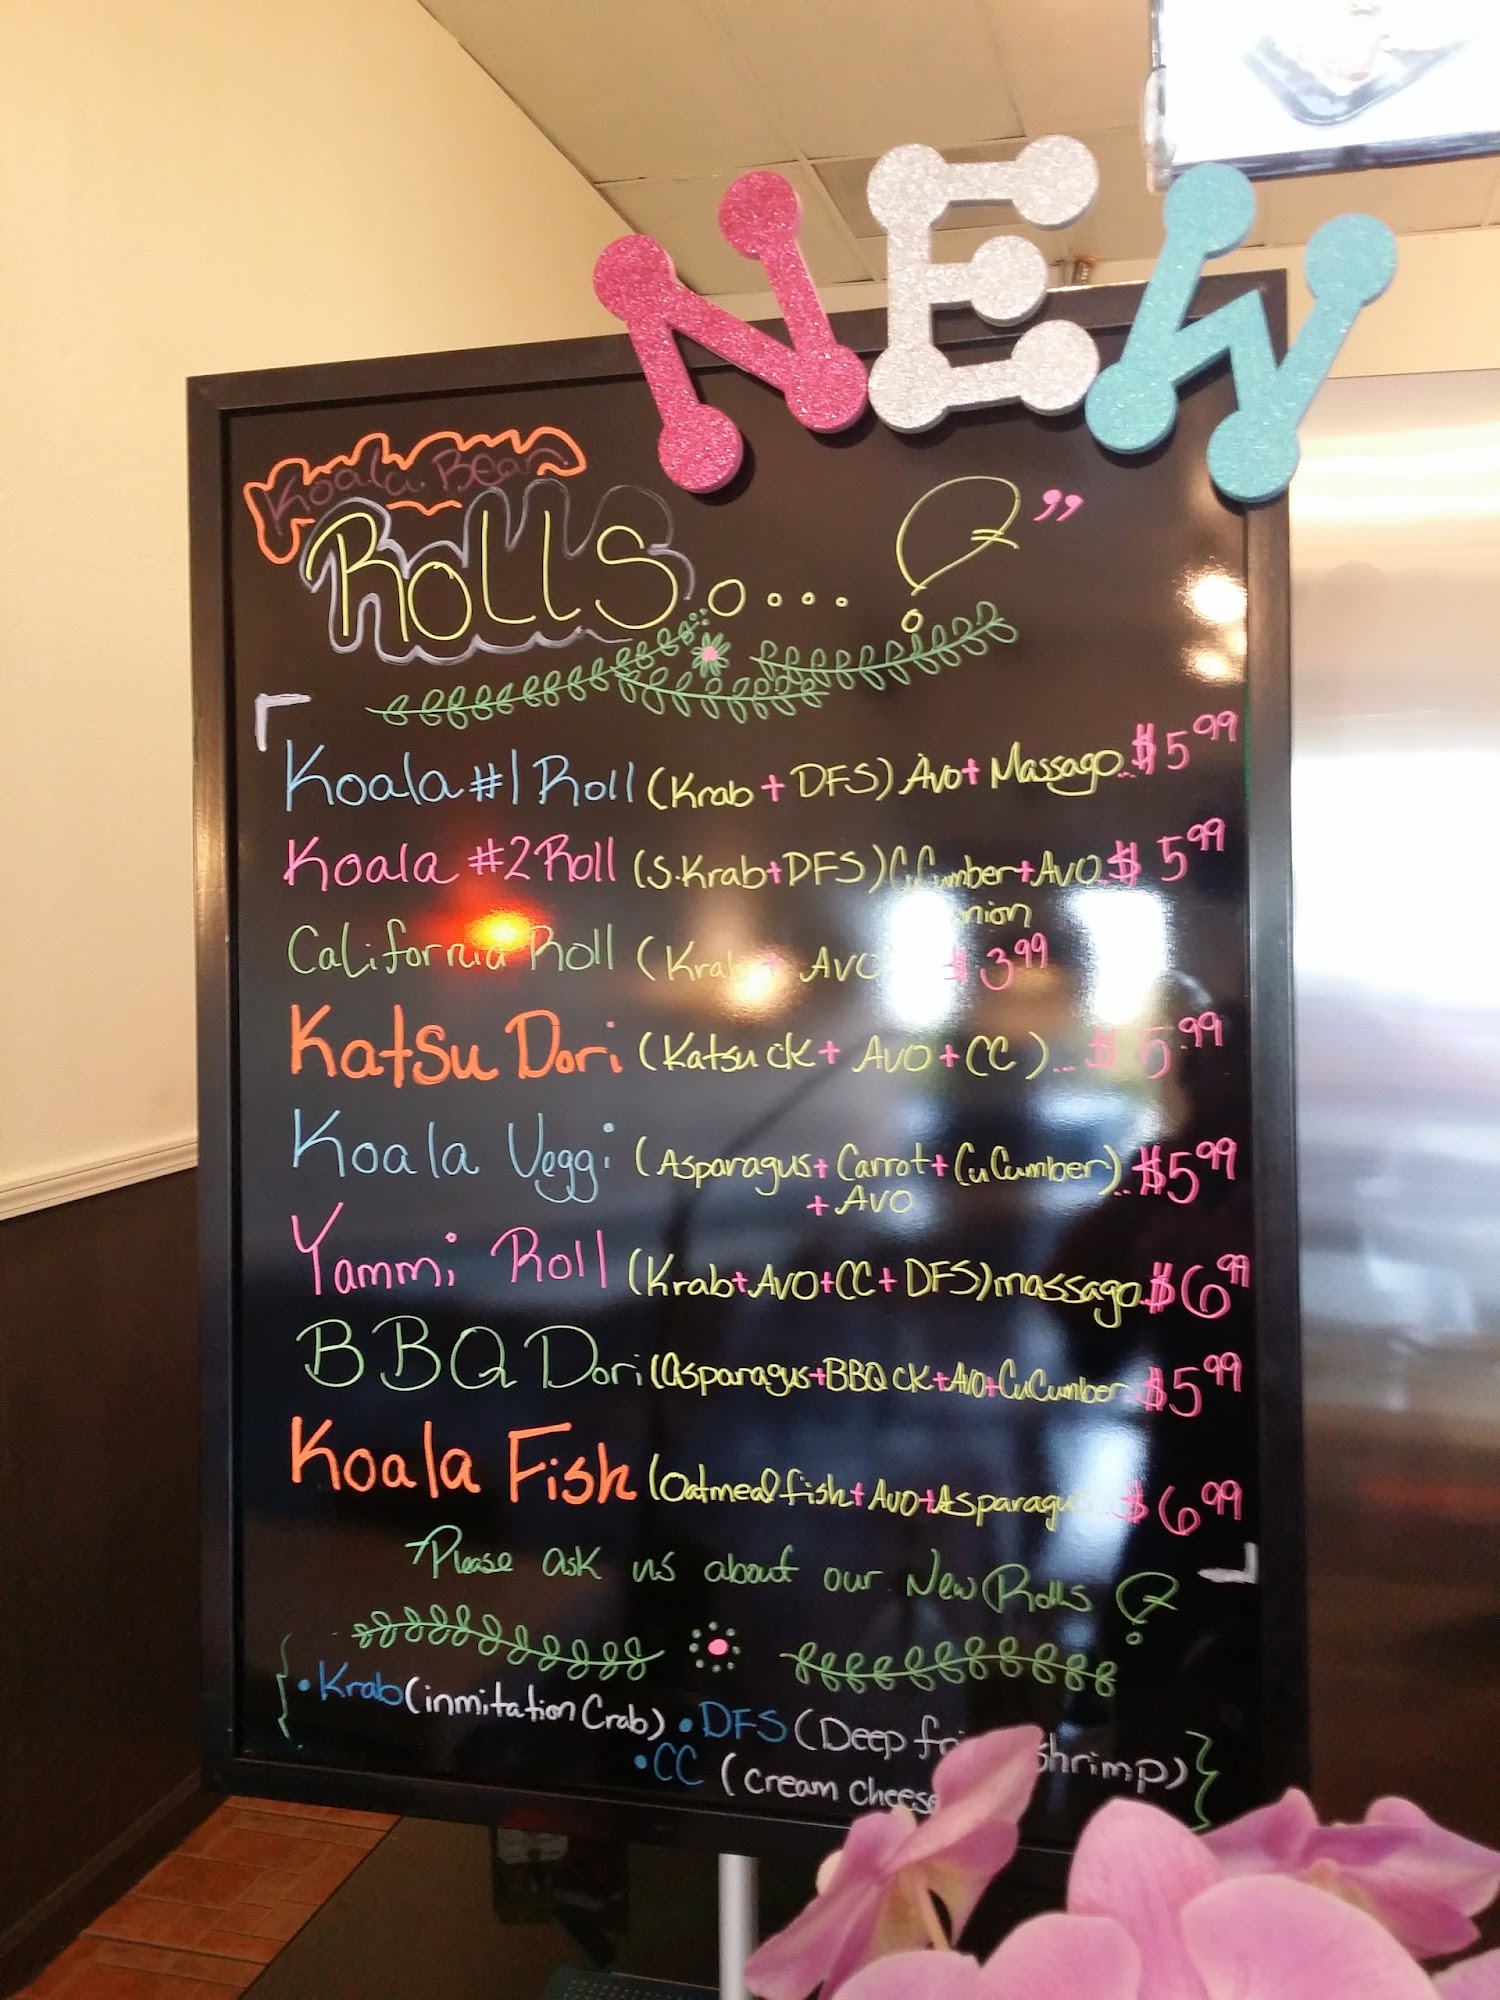 NEW
Koala Bear
Rolls....
Koala #1 Roll (Krab + DFS) Avo+ Massago...$5.99
Koala #2 Roll (S.Krab+DFS) CuCumber+Avo.$5.99
California Roll (Krab + Avo $3.99
Katsu Dori (Katsu ck + Avo + CC)...$5.99
Koala Veggi (Asparagus+ Carrot+ CuCumber)..$5.99
+ Avo
Yammi Roll (Krab+Avo+CC+ DFS)massago.$6.99
BBQ Dori (asparagus+BBQ ck+Avo+CuCumber..$5.99
Koala Fish (Oatmeal fish+Avo+Asparagus..$6.99
Please ask us about our New Rolls
• Krab (inmitation Crab) • DFS (Deep shrimp)
• CC (cream cheese